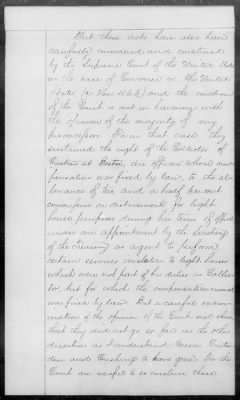 But these acts have also been
carefully examined and construed
by the Supreme Court of the United States
in the case of Converse vs The United
States (21 How 463) and the conclusion
of the Court is not in harmony with
the opinion of the majority of my
predecessors. For in that case they
sustained the right of the Collector of
Customs at Boston, an officer whose com-
pensation was fixed by law, to the al-
lowance of two and a half per cent
commission on disbursements for light
house purposes during his term of office
under an appointment by the Secretary
of the Treasury as agent to perform
certain services in relation to light houses
which were not part of his duties as Collec-
tor, but for which the compensation
was fixed by law. But a careful exam-
ination of the opinion of the Court will show
that they did not go so far in the other
direction as I understand Messrs
and Cushing to have gone. For the
Court are careful to so conclude these